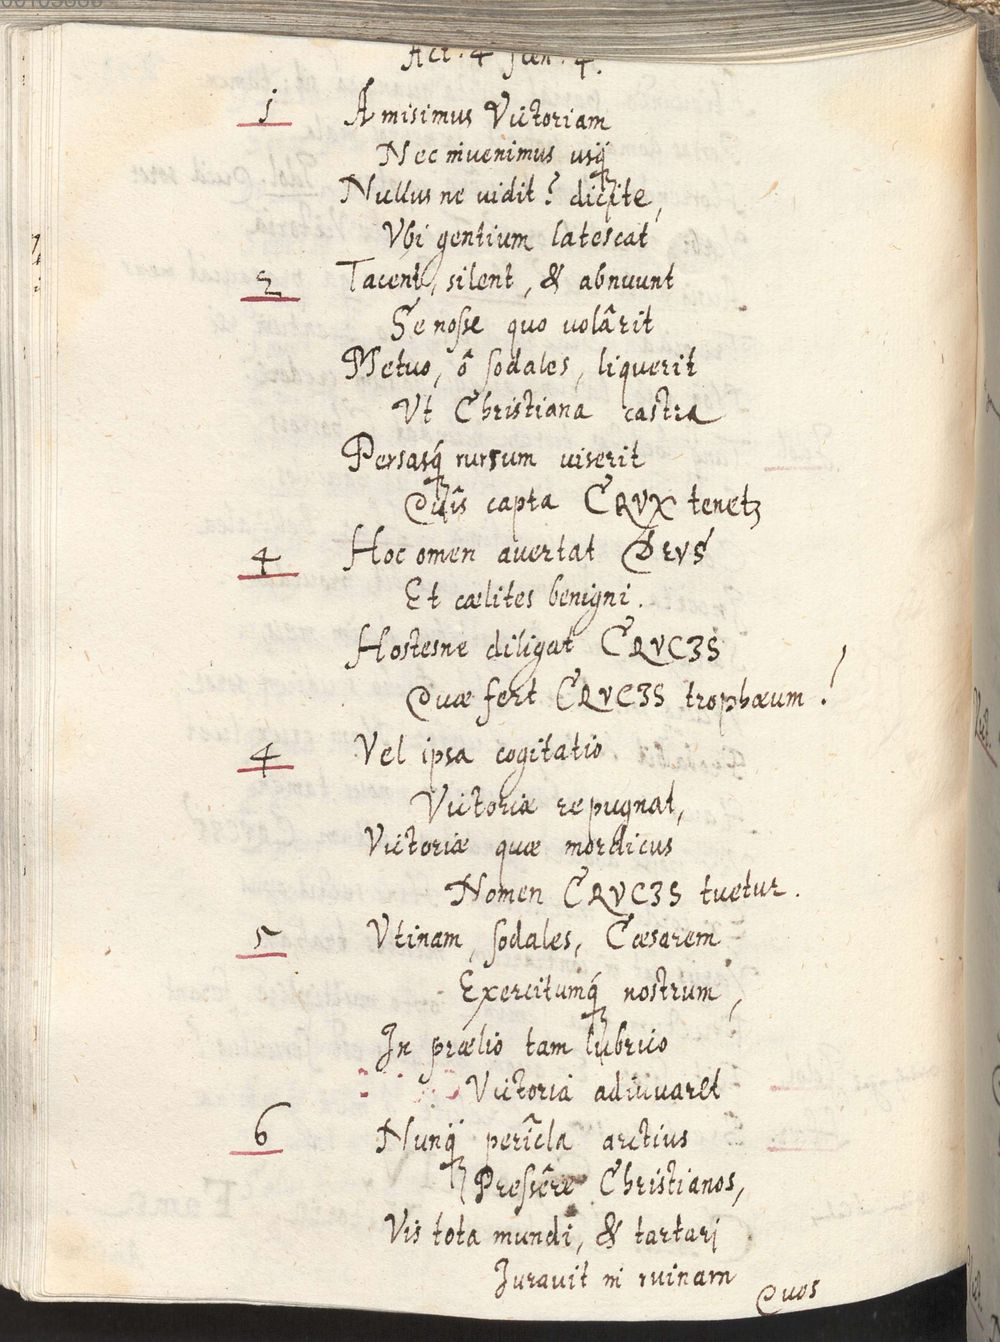 Act. 4 scen. 4.
1 Amisimus Victoriam
Nec invenimus usq̃
Nullus ne vidit? dicite,
Vbi gentium latescat
2 Tacent, silent, & abnuunt
Se nosse quo volârit
Metuo, ô sodales, liquerit
Ut Christiana castra
Persasq́ rursum viserit
Quîs capta CRVX tenetꝫ
4 Hoc omen avertat DEVS
Et cælites benigni.
Hostesne diligat CRVCIS
Quæ fert CRVCIS trophæum!
4 Vel ipsa cogitatio
Victoriæ repugnat,
Victoriæ quæ mordicus
Nomen CRVCIS tuetur.
5 Vtinam, sodales, Cæsarem
Exercitumq́ nostrum,
In prælio tam lubrico
Victoria adiuvaret
6 Nunq̃ perîcla arctius
Pressêre Christianos,
Vis tota mundi, & tartari
Iuravit in ruinam
Quos